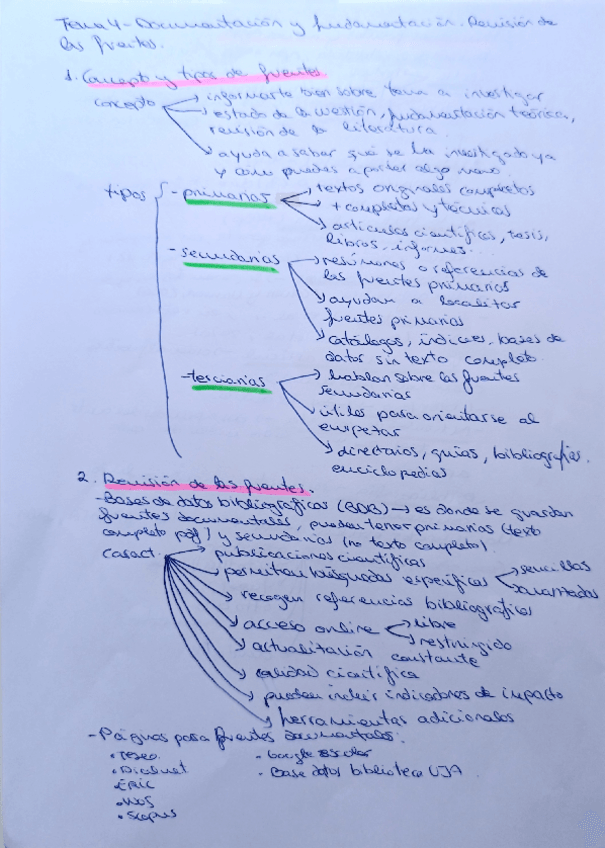 Tema 4 - Documentación y fundamentación. Revisión de
las fuentes.
1. Concepto y tipos de fuentes
concepto → informarte bien sobre tema a investigar
→ estado de la cuestión, fundamentación teórica,
revisión de la literatura
→ ayuda a saber qué se ha investigado ya
y cómo puedes aportar algo nuevo
tipos - primarias → textos originales completos
→ + completas y técnicas
→ artículos científicos, tesis,
libros, informes...
- secundarias → resúmenes o referencias de
las fuentes primarias
→ ayudan a localizar
fuentes primarias
→ catálogos, índices, bases de
datos sin texto completo.
- terciarias → hablan sobre las fuentes
secundarias
→ útiles para orientarse al
empezar
→ directorios, guías, bibliografías,
enciclopedias
2. Revisión de las fuentes.
- Bases de datos bibliográficas (BDB) → es donde se guardan
fuentes documentales, pueden tener primarias (texto
completo pdf) y secundarias (no texto completo).
Caract. → publicaciones científicas
→ permiten búsquedas específicas → sencillas
→ avanzadas
→ recogen referencias bibliográficas
→ acceso online → libre
→ restringido
→ actualización constante
→ calidad científica
→ pueden incluir indicadores de impacto
→ herramientas adicionales
- Páginas para fuentes documentales:
• Teseo
• Dialnet
• ERIC
• WOS
• Scopus
• Google escolar
• Base datos biblioteca UJA